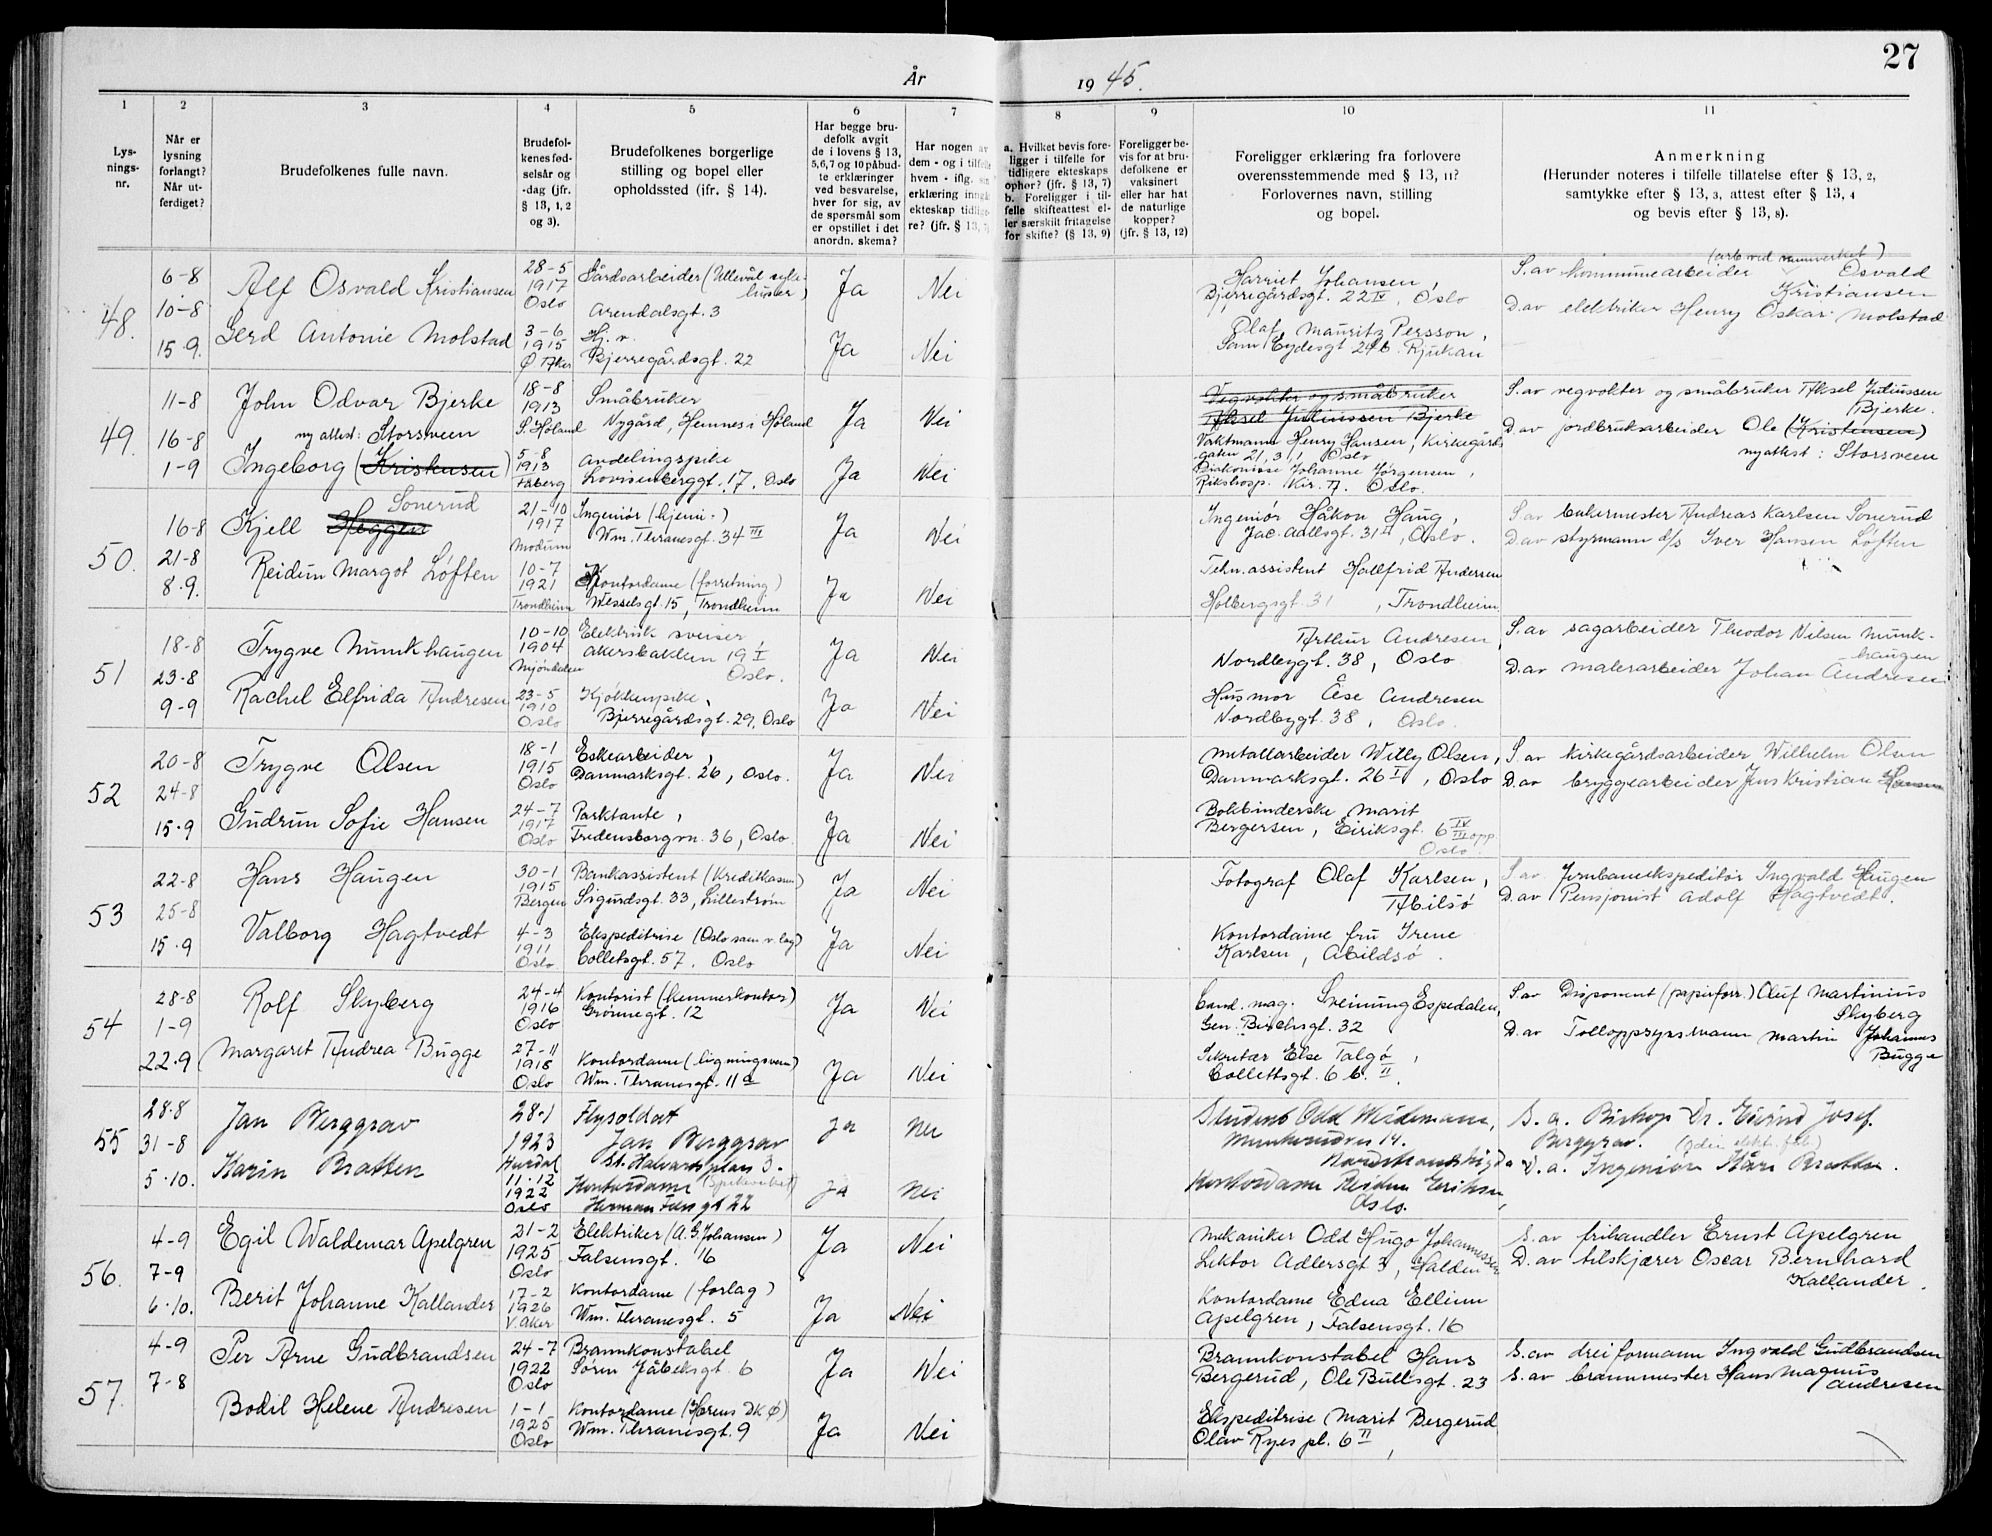 27
År
19 45.
1
2
3
4
5
6
7
8
9
10
11
Lys-
nings-
nr.
Når er
lysning
forlangt?
Når ut-
ferdiget?
Brudefolkenes fulle navn.
Brudefol-
kenes fød-
selsår og
-dag (jfr.
§ 13, 1, 2
og 3).
Brudefolkenes borgerlige
stilling og bopel eller
opholdssted (jfr. § 14).
Har begge bru-
defolk avgit
de i lovens § 13,
5,6,7 og 10 påbud-
te erklæringer
ved besvarelse,
hver for sig, av
de spørsmål som
er opstillet i det
anordn. skema?
Har nogen av
dem - og i tilfelle
hvem - iflg. sin
erklæring inngått
ekteskap tidlige-
re? (jfr. § 13, 7)
a. Hvilket bevis fore-
ligger i tilfelle for
tidligere ekteskaps
ophør? (jfr. § 13, 7)
b. Foreligger i til-
felle skifteattest el-
ler særskilt fritagelse
for skifte? (§ 13, 9)
Foreligger be-
vis for at bru-
defolkene er
vaksinert
eller har hat
de naturlige
kopper?
(jfr. § 13, 12)
Foreligger erklæring fra forlovere
overensstemmende med § 13, 11?
Forlovernes navn, stilling
og bopel.
Anmerkning
(Herunder noteres i tilfelle tillatelse efter § 13, 2,
samtykke efter § 13, 3, attest efter § 13, 4
og bevis efter § 13, 8).
48.
6-8
10-8
15-9.
Alf Osvald Kristiansen
28-5
1917
Oslo
Gårdsarbeider (Ullevål syke-
huset)
Arendalsgt. 3
Ja
Nei
Gerd Antonie Molstad
3-6
1915
Ø. Aker
Hj. v.
Bjerregårdsgt. 22
Ja
Nei
Harriet Johansen,
Bjerregårdsgt. 22 IV, Oslo
Olaf Mauritz Persson,
Sam Eydesgt 246. Rjukan
S. av kommunearbeider Osvald
Kristiansen
D. av elektriker Henry Oskar Molstad
49.
11-8
16-8
1-9
John Odvar Bjerke
18-8
1913
S. Høland
Småbruker
Nygård, Hemnes i Høland
Ja
Nei
ny attest: Storsveen
Ingeborg (Kristensen)
5-8
1913
Fåberg
Avdelingspike
Lovisenberggt. 17. Oslo
Ja
Nei
Vegvokter og småbruker
Aksel Juliussen Bjerke
Vaktmann Henry Hansen, Kirkegårds
gaten 21, 3, 1 Oslo
Diakonisse Johanne Jørgensen,
Rikshosp. Kir. A. Oslo.
S. av vegvokter og småbruker Aksel Juliussen
Bjerke.
D. av jordbruksarbeider Ole (Kristensen)
ny attest: Storsveen
50.
16-8
21-8
8-9.
Sonerud
Kjell Heggen
21-10
1917
Modum
Ingeniør (kjemi-)
Wm. Thranesgt. 34 III
Ja
Nei
Reidun Margot Løften
10-7
1921
Trondheim
Kontordame (forretning)
Wesselsgt. 15, Trondheim
Ja
Nei
Ingeniør Håkon Haug,
Jac. Aallsgt. 31 II, Oslo.
Tekn. assistent Hallfrid Andersen
Holbergsgt. 31, Trondheim
S. av bakermester Andreas Karlsen Sonerud
D. av styrmann d/s Iver Hansen Løften
51
18-8
23-8
9-9
Trygve Munkhaugen
10-10
1904
Mjøndalen
Elektrisk sveiser,
Akersbakken 19 I
Oslo.
Ja
Nei
Rachel Elfrida Andresen
23-5
1910
Oslo
Kjøkkenpike,
Bjerregårdsgt. 29, Oslo
Ja
Nei
Arthur Andresen,
Nordbygt. 38, Oslo
Husmor Åse Andresen
Nordbygt. 38, Oslo.
S. av sagarbeider Theodor Nilsen Munk-
haugen
D. av malerarbeider Johan Andresen
52
20-8
24-8
15-9
Trygve Olsen
18-1
1915
Oslo
Eskearbeider,
Danmarksgt. 26, Oslo.
Ja
Nei
Gudrun Sofie Hansen
24-7
1917
Oslo
Parktante,
Fredensborgvn. 36, Oslo
Ja
Nei
Metallarbeider Willy Olsen,
Danmarksgt. 26 I, Oslo
Bokbinderske Marit
Bergersen, Eiriksgt. 6 IV
III opp.
Oslo.
S. av kirkegårdsarbeider Wilhelm Olsen
D. av bryggearbeider Jens Kristian Hansen
53
22-8
25-8
15-9
Hans Haugen
30-1
1915
Bergen
Bankassistent (Kreditkassen)
Sigurdsgt. 33, Lillestrøm
Ja
Nei
Valborg Hagtvedt
4-3
1911
Oslo
Ekspeditrise (Oslo sam.v.lag)
Colletsgt. 57. Oslo
Ja
Nei
Fotograf Olaf Karlsen,
Abilsø
Kontordame fru Irene
Karlsen, Abildsø.
S. av Jernbaneekspeditør Ingvald Haugen
D. av Pensjonist Adolf Hagtvedt.
54
28-8
1-9
22-9
Rolf Skyberg
24-4
1916
Oslo
Kontorist (kemnerkontor)
Grønnegt. 12
Ja
Nei
Margaret Andrea Bugge
27-11
1918
Oslo
Kontordame (ligningsvesen)
Wm. Thranesgt. 11a
Ja
Nei
Cand. mag. Sveinung Espedalen,
Gen. Birchsgt. 32
Sekretær Else Talgø,
Collettsgt. 6 b. II.
S. av Disponent (papirforr.) Oluf Martinius
Skyberg
D. av Tolloppsynsmann Martin Johannes
Bugge
55
28-8
31-8
5-10.
Jan Berggrav
28-1
1923
Hurdal
Flysoldat
Jan Berggrav
St. Halvards plass 3.
Ja
Nei
Karin Bratten
11-12
1922
Oslo
Kontordame
Herman Foss gt 22
Ja
Nei
Student Odd Weidemann,
Munkerudvn 14.
Nordstrandshøgda
Kontordame Reidun Eriksen,
Oslo.
S. a. Biskop Dr. Eivind Josef.
Berggrav.
D. a. Ingeniør Kåre Bratten.
56.
4-9
7-9
6-10.
Egil Waldemar Apelgren
21-2
1925
Oslo
Elektriker (A. G. Johansen)
Falsensgt. 16
Ja
Nei
Berit Johanne Kallander
17-2
1926
V. Aker
Kontordame (forlag)
Wm. Thranesgt. 5
Ja
Nei
Mekaniker Odd Hugo Johannessen
Lektor Adlersgt 3, Halden
Kontordame Edna Ellinn
Apelgren, Falsensgt. 16
S. av frihandler Ernst Apelgren
D. av tilskjærer Oscar Bernhard
Kallander.
57.
4-9
7-8
Per Arne Gudbrandsen
24-7
1922
Oslo
Brannkonstabel
Søren Jåbeksgt. 6
Ja
Nei
Bodil Helene Andresen
1-1
1925
Oslo
Kontordame (Hærens DKØ)
Wm. Thranesgt. 9
Ja
Nei
Brannkonstabel Hans
Bergerud, Ole Bullsgt. 23
Ekspeditrise Marit Bergerud
Olav Ryes pl. 6 II,
S. av dreiformann Ingvald Gudbrandsen
S. av brannmester Hans Magnus
Andresen